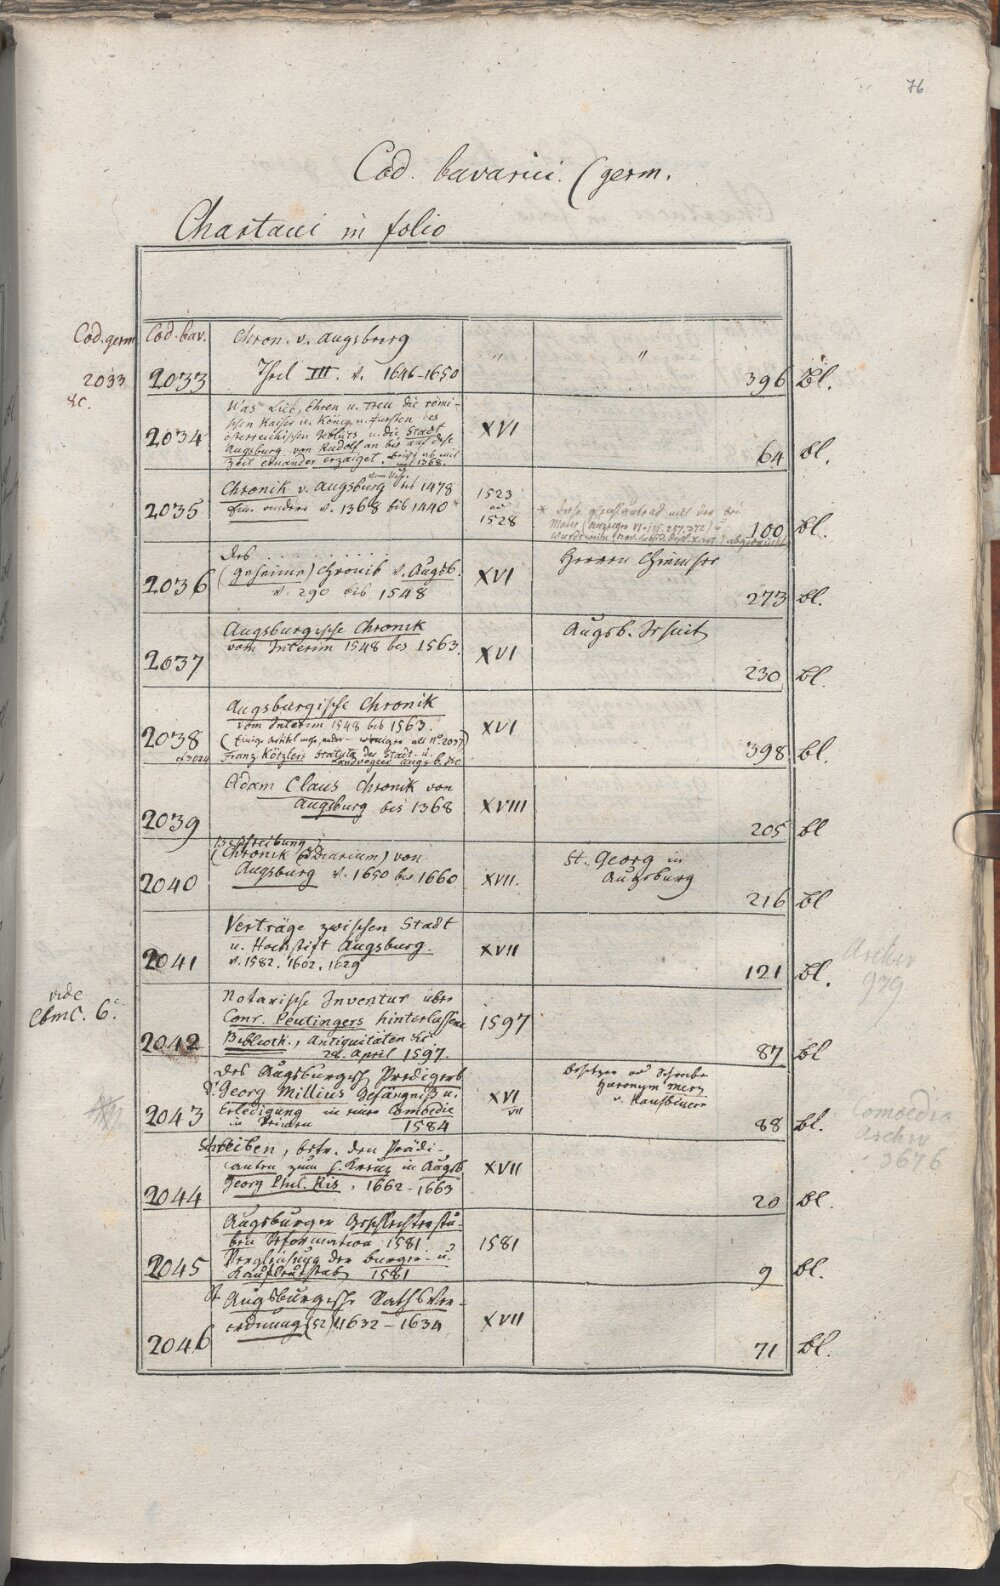 76
Cod. bavarici. (germ.
Chartacei in folio
Cod. germ. Cod. bav.
2033 &c.
2033
Chron. v. Augsburg
Theil III. v. 1646-1650
" "
396 Bl.
2034
Was Lieb, Ehren u. Treu die römi-
schen Kaiser u. König u. Fürsten des
österreichischen Geblüts u. die Stadt
Augsburg von Rudolf an bis auf diese
Zeit einander erzaiget. bricht ab mit
1368.
XVI
64 bl.
2035
Chronik v. Augsburg bis 1478
Eine andere v. 1368 bis 1440 *
1523
1528
* diese
Mone (Anzeiger VI.
100 bl.
2036
des
(geheime) Chronik v. Augsb.
v. 290 bis 1548
XVI
Herren
273 bl.
2037
Augsburgische Chronik
vom Interim 1548 bis 1563.
XVI
Augsb. Jesuit
230 bl.
2038
cf 3024
Augsburgische Chronik
vom Interim 1548 bis 1563.
(Einige Artikel mehr, andere weniger als No. 2037)
Franz Kötzlers Statuta der Stadt- u.
Landvogtei Augsb. &c
XVI
398 bl.
2039
Adam Claus Chronik von
Augsburg bis 1368
XVIII
205 bl
2040
Beschreibung
(Chronik Diarium) von
Augsburg v. 1650 bis 1660
XVII.
St. Georg in
Augsburg
216 bl
2041
Verträge zwischen Stadt
u. Hochstift Augsburg.
v. 1582. 1602. 1629
XVII
121 bl.
Archiv
939.
vide
CbmC. 6.
2042
Notarische Inventur über
Conr. Peutingers hinterlassene
Biblioth., Antiquitäten &c
22. April 1597.
1597
87 bl
2043
Des Augsburgisch. Predigers
Dr Georg Millius Gefängniß u.
Erledigung in einer Comoedie
in Reimen 1584
XVI
VII
Besitzer od. Schreiber
Hieronym Merz
v. Kaufbeuern
88 bl.
Comoedia
Archiv
3676
2044
Schreiben, betr. den Prädi-
canten zum h. Kreuz in Augsb.
Georg Phil. Ris, 1662-1663
XVII
20 bl.
2045
Augsburger Geschlechterstu-
ben Reformation 1581
Vergleichung der Burger- u.
Kaufleutstub 1581
1581
9 bl.
2046
Augsburgische Rathsver-
ordnung (52) 1632-1634
XVII
71 bl.